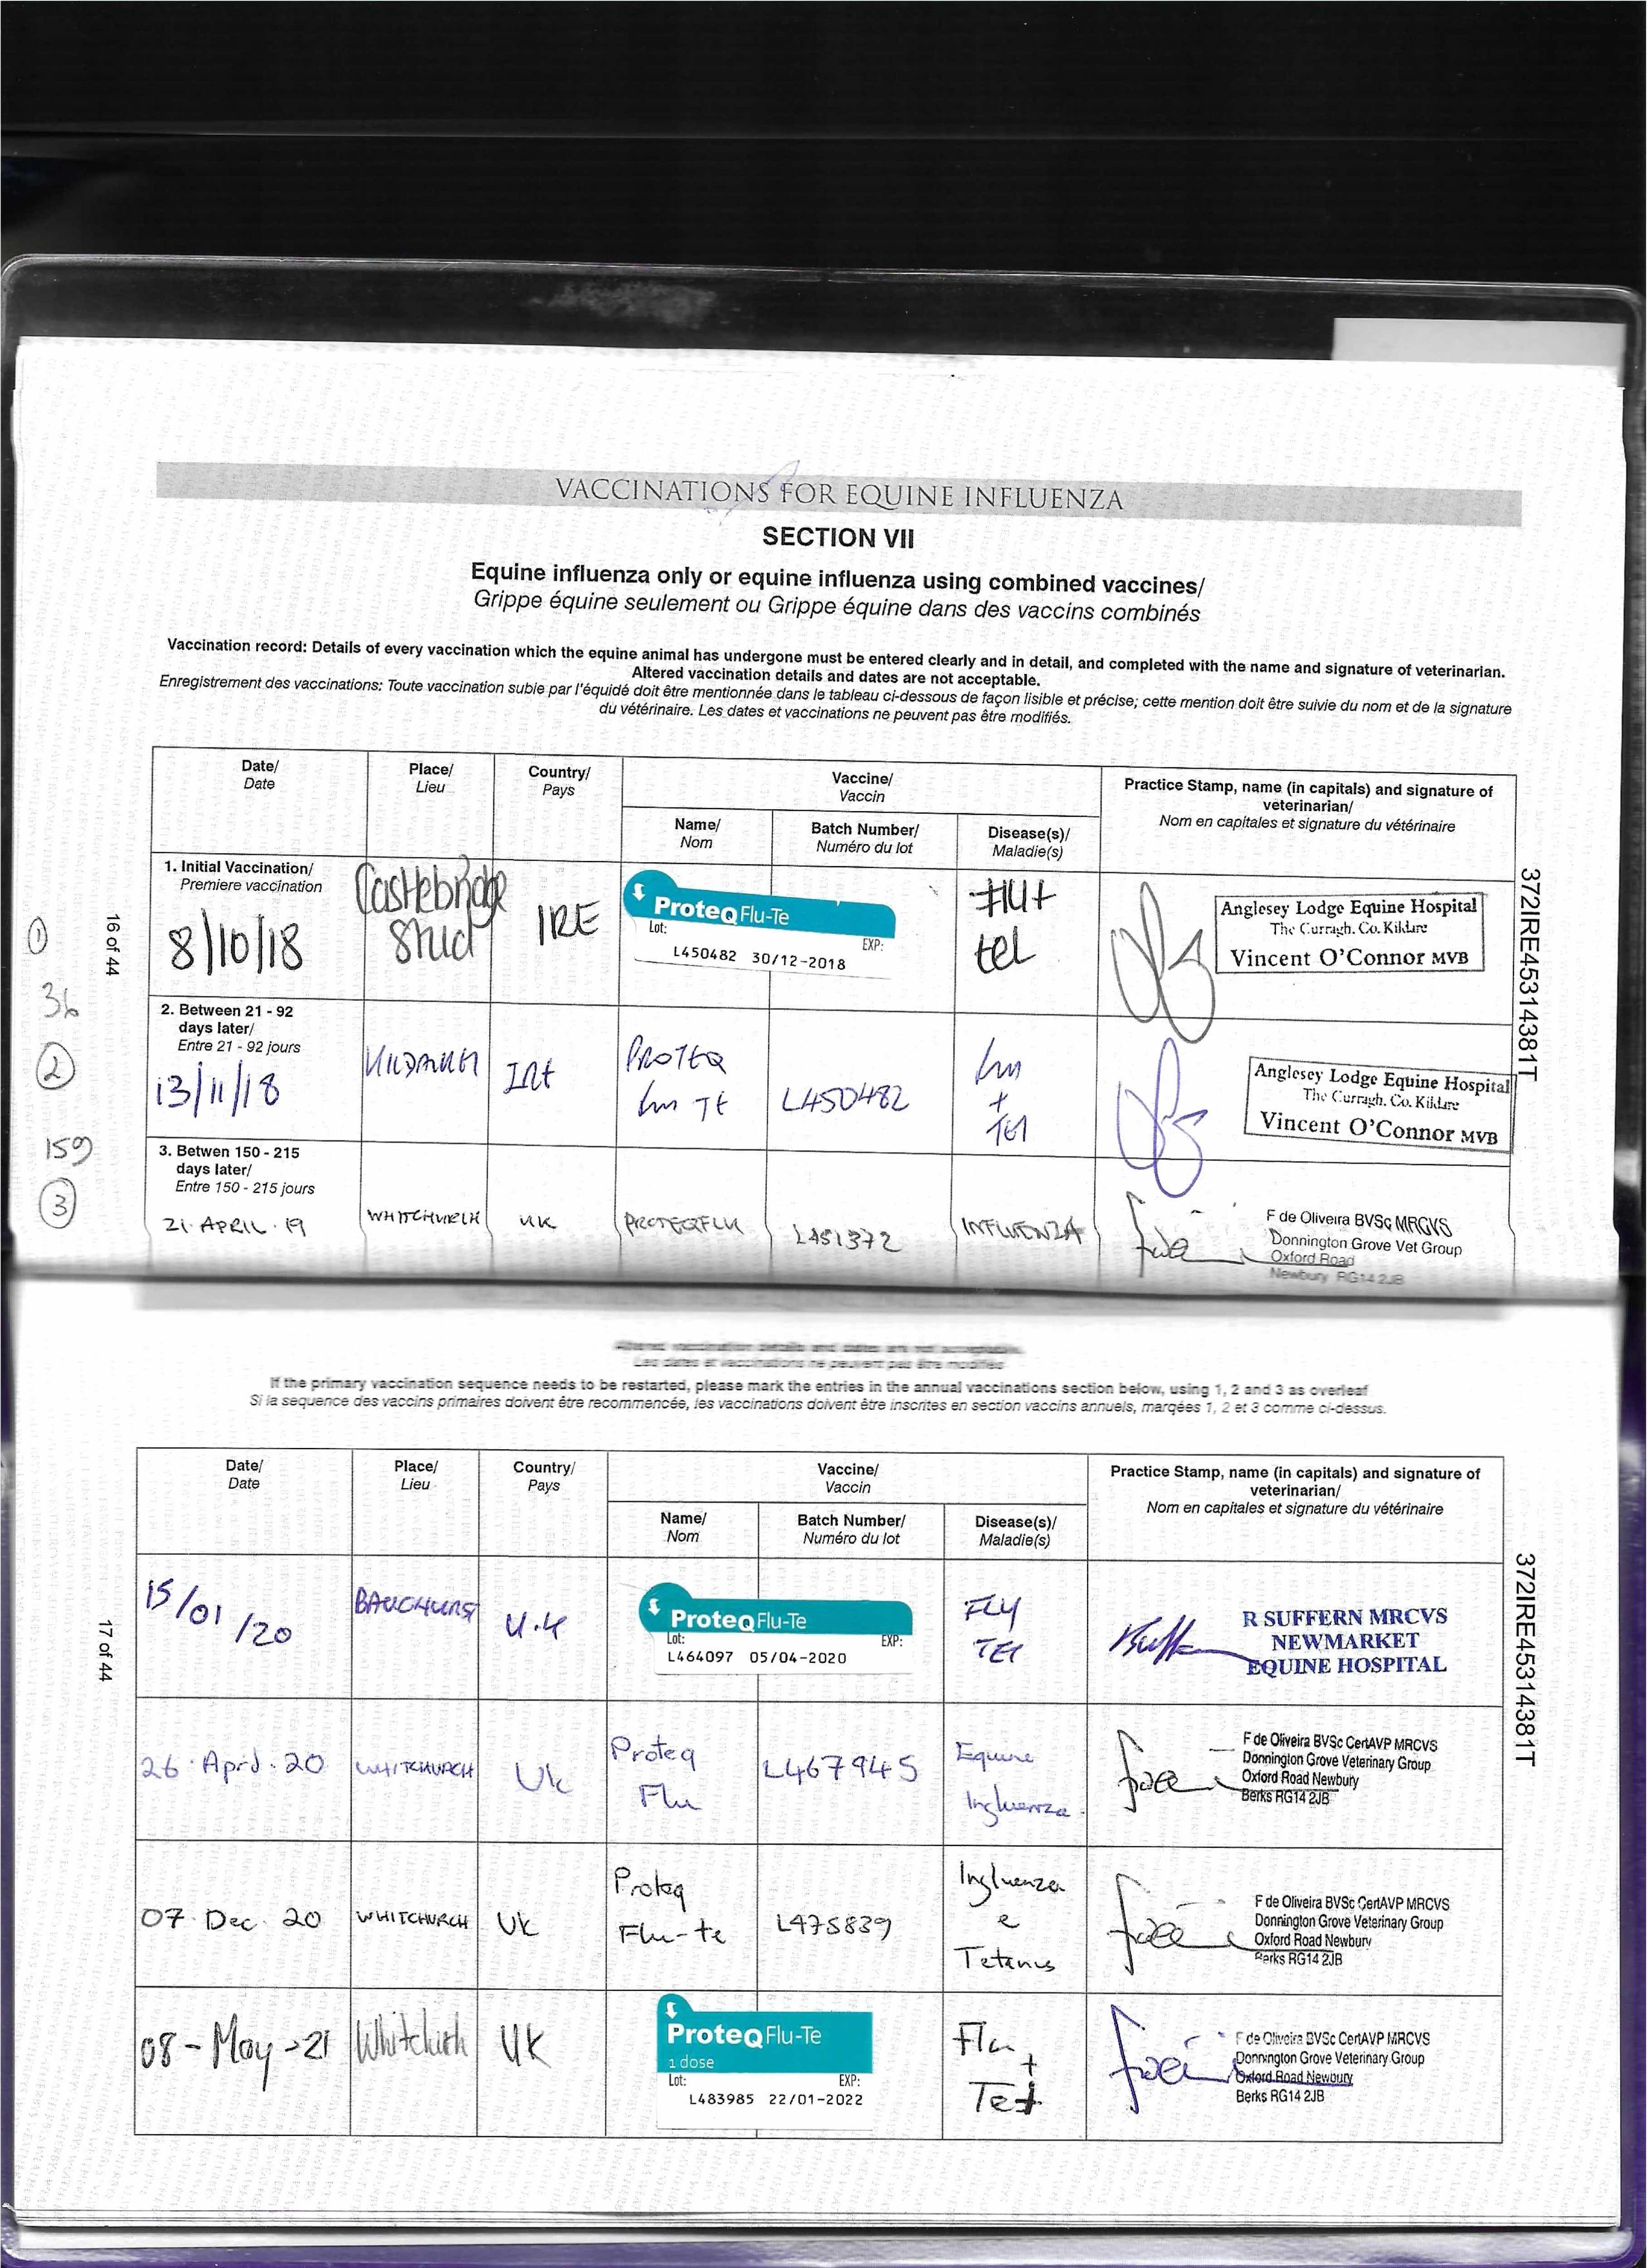 VACCINATIONS FOR EQUINE INFLUENZA
SECTION VII
Equine influenza only or equine influenza using combined vaccines/
Grippe équine seulement ou Grippe équine dans des vaccins combinés
Vaccination record: Details of every vaccination which the equine animal has undergone must be entered clearly and in detail, and completed with the name and signature of veterinarian.
Altered vaccination details and dates are not acceptable.
Enregistrement des vaccinations: Toute vaccination subie par l'équidé doit être mentionnée dans le tableau ci-dessous de façon lisible et précise; cette mention doit être suivie du nom et de la signature
du vétérinaire. Les dates et vaccinations ne peuvent pas être modifiés.
Date/
Date
Place/
Lieu
Country/
Pays
Vaccine/
Vaccin
Name/
Nom
Batch Number/
Numéro du lot
Disease(s)/
Maladie(s)
Practice Stamp, name (in capitals) and signature of
veterinarian/
Nom en capitales et signature du vétérinaire
1
36
2
159
3
16 of 44
372IRE45314381T
1. Initial Vaccination/
Premiere vaccination
8/10/18
Castlebridge
Stud
IRE
ProteqFlu-Te
Lot: EXP:
L450482 30/12-2018
Flu+
tet
Anglesey Lodge Equine Hospital
The Curragh. Co. Kildare
Vincent O'Connor MVB
2. Between 21 - 92
days later/
Entre 21 - 92 jours
13/11/18
IRE
PROTEQ
Flu TE
L450482
Flu
+
TET
Anglesey Lodge Equine Hospital
The Curragh. Co. Kildare
Vincent O'Connor MVB
3. Betwen 150 - 215
days later/
Entre 150 - 215 jours
21 APRIL 19
WHITCHURCH
UK
PROTEQFLU
L451372
INFLUENZA
F de Oliveira BVSc MRCVS
Donnington Grove Vet Group
Oxford Road
Newbury RG14 2JB
Altered vaccination details and dates are not acceptable.
Les dates et vaccinations ne peuvent pas être modifiés
If the primary vaccination sequence needs to be restarted, please mark the entries in the annual vaccinations section below, using 1, 2 and 3 as overleaf
Si la sequence des vaccins primaires doivent être recommencée, les vaccinations doivent être inscrites en section vaccins annuels, marqées 1, 2 et 3 comme ci-dessus.
Date/
Date
Place/
Lieu
Country/
Pays
Vaccine/
Vaccin
Name/
Nom
Batch Number/
Numéro du lot
Disease(s)/
Maladie(s)
Practice Stamp, name (in capitals) and signature of
veterinarian/
Nom en capitales et signature du vétérinaire
17 of 44
372IRE45314381T
15/01/20
BAUGHURST
U.K
ProteqFlu-Te
Lot: EXP:
L464097 05/04-2020
FLU
TET
R SUFFERN MRCVS
NEWMARKET
EQUINE HOSPITAL
26 April 20
WHITCHURCH
Uk
Proteq
Flu
L467945
Equine
Influenza
F de Oliveira BVSc CertAVP MRCVS
Donnington Grove Veterinary Group
Oxford Road Newbury
Berks RG14 2JB
07 Dec 20
WHITCHURCH
UK
Proteq
Flu-te
L475839
Influenza
e
Tetanus
F de Oliveira BVSc CertAVP MRCVS
Donnington Grove Veterinary Group
Oxford Road Newbury
Berks RG14 2JB
08-May-21
Whitchurch
UK
ProteqFlu-Te
1 dose
Lot: EXP:
L483985 22/01-2022
Flu
+
Tet
F de Oliveira BVSc CertAVP MRCVS
Donnington Grove Veterinary Group
Oxford Road Newbury
Berks RG14 2JB